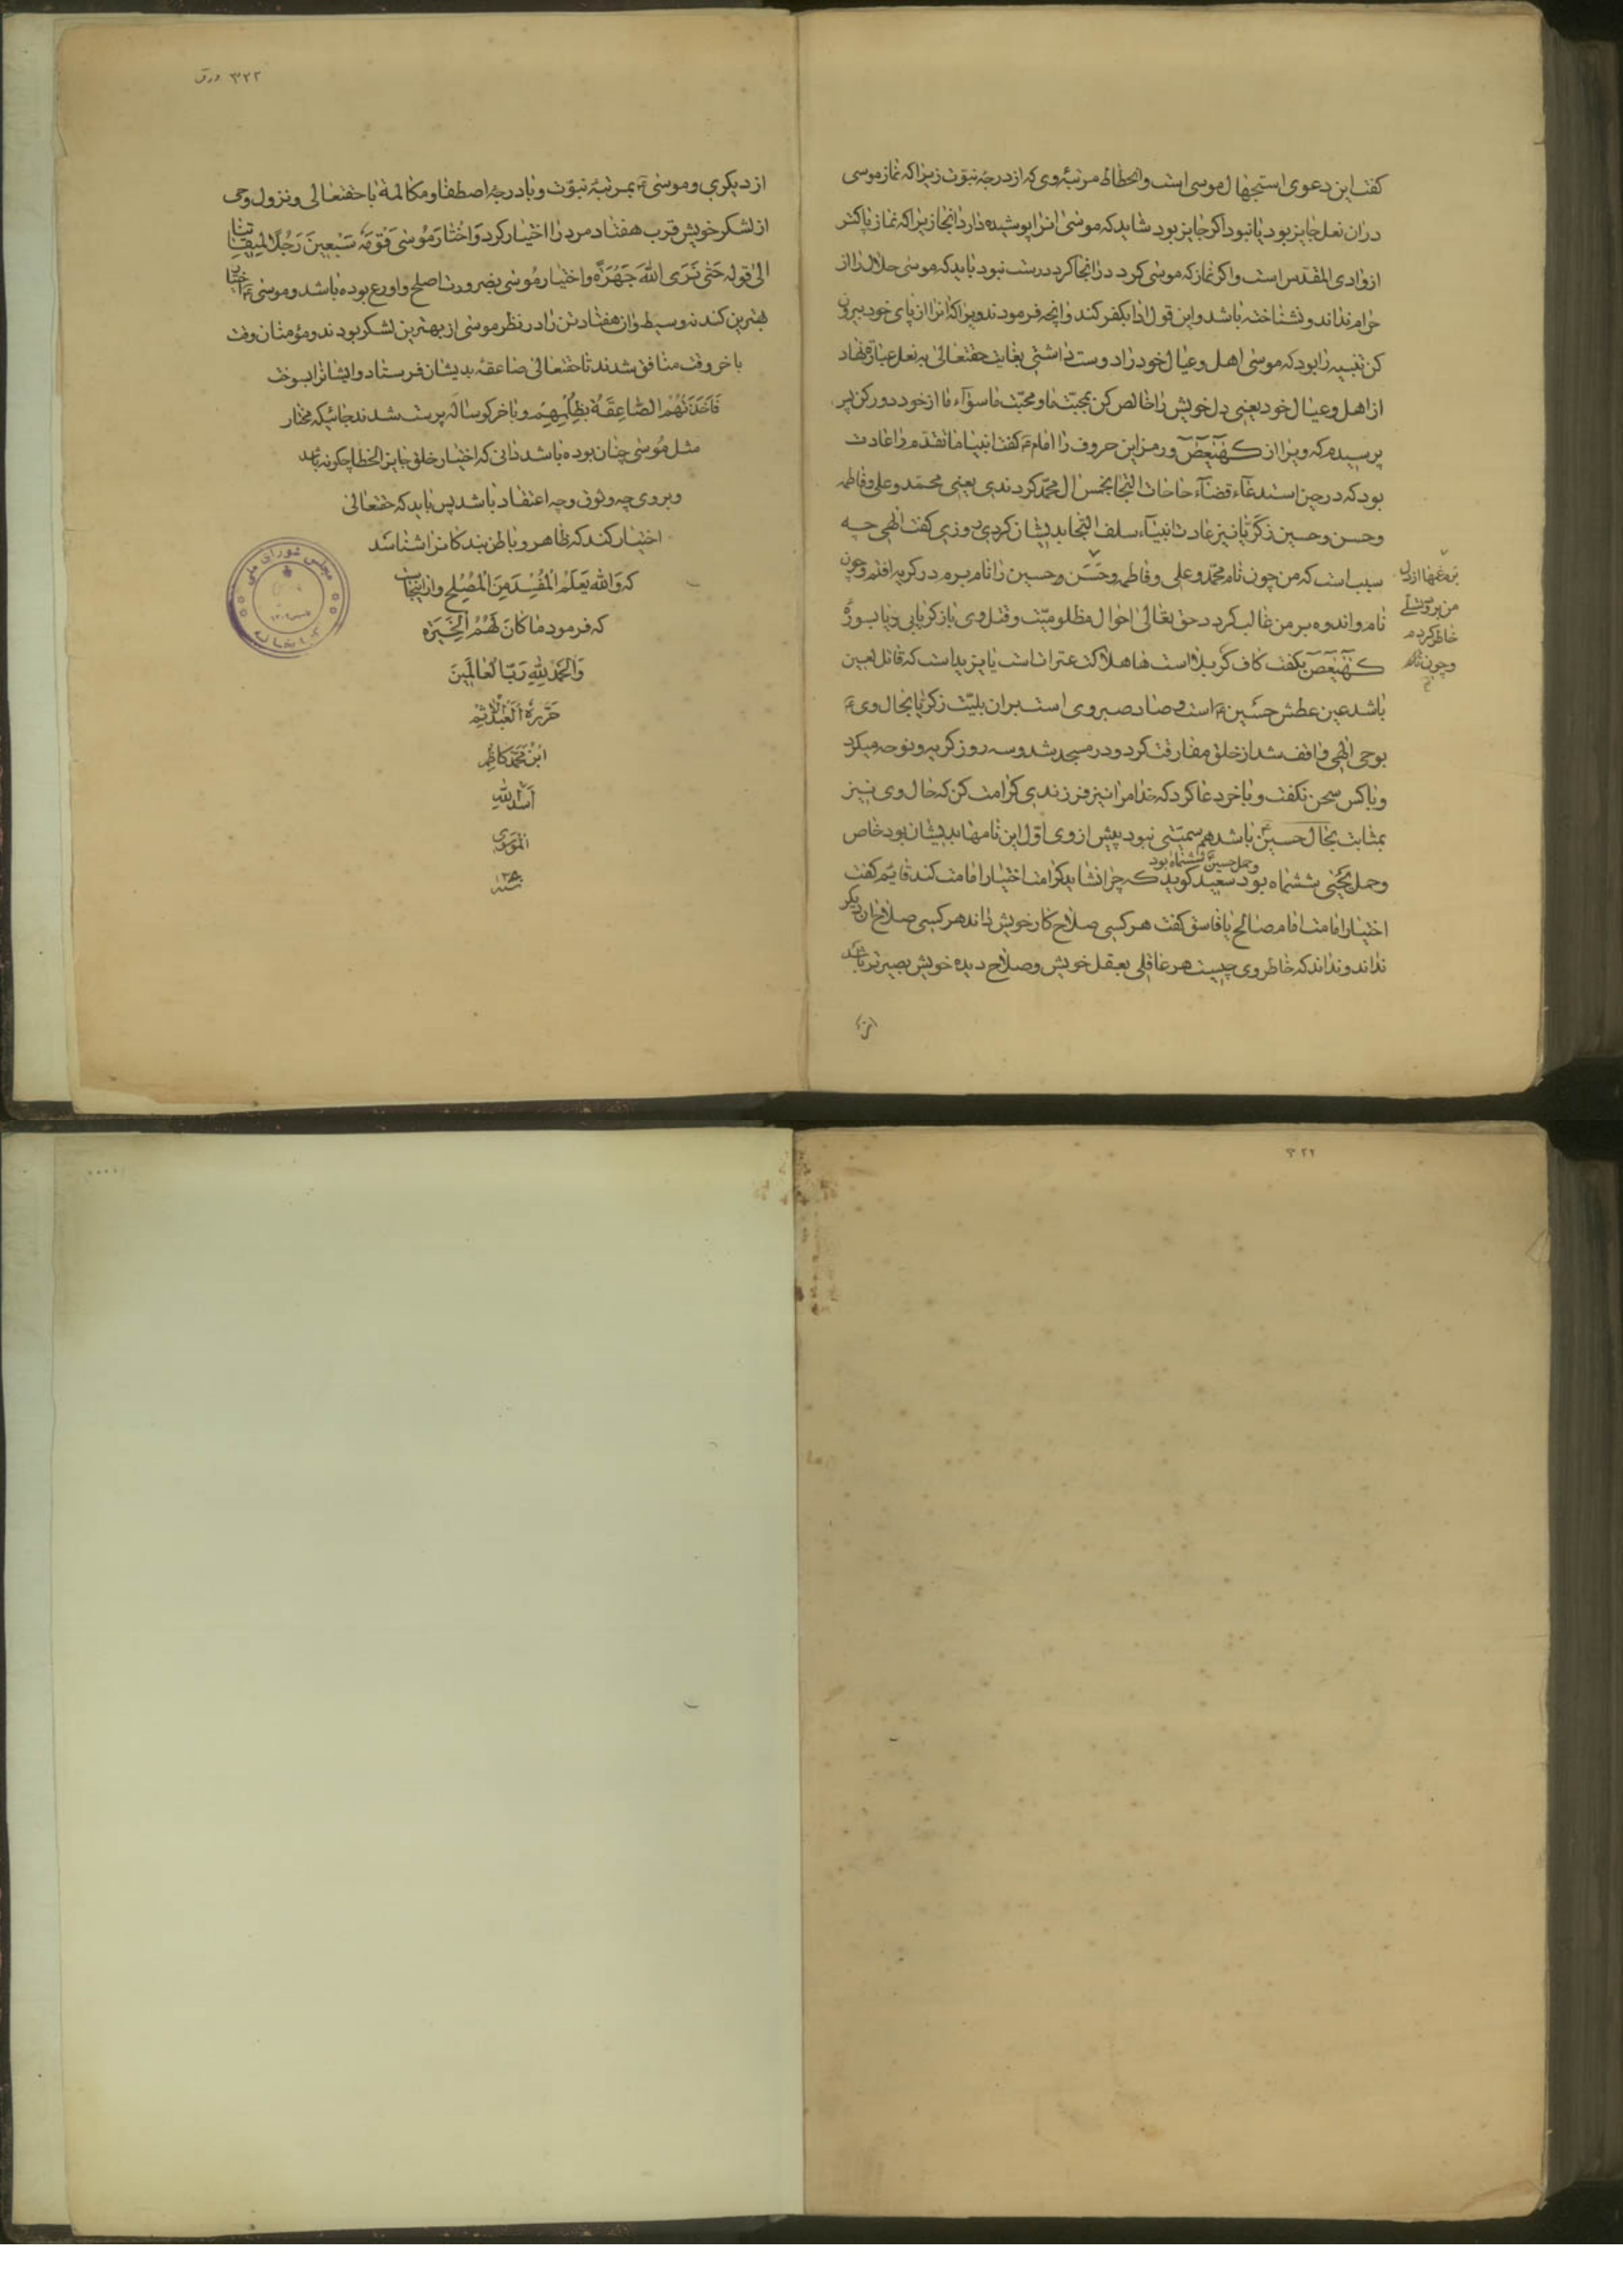 کفت این دعوی استجهال موسی است و انحطاط مرتبهٔ وی که از درجهٔ نبوّت زیرا که نماز موسی
در ان نعل جایز بود یا نبود اکر جایز بود شاید که موسی انرا پوشیده دارد انجا زیرا که نماز پاکتر
از وادی المقدس است و اکر نماز که موسی کرد در انجا کرد درست نبود باید که موسی حلال را از
حرام نداند و نشناخته باشد و این قول ادا بکفر کند و انچه فرمودند ویرا که انرا از پای خود بیرون
کن تنبیه را بود که موسی اهل و عیال خود را دوست داشتی بغایت حقتعالی به نعل عبارة نهاد
از اهل و عیال خود یعنی دل خویش را خالص کن بمحبت ما و محبت ماسوآء ما از خود دور کن پر
پرسیدم که ویرا از کهیعص و رمز این حروف را امام ع کفت انبیا ما تقدم را عادت
بود که در حین استدعآء قضآء حاجات التجا بخمس ال محمّد کردندی یعنی محمّد و علی و فاطمه
و حسن و حسین زکریا نیز عادت انبیآء سلف التجا بدیشان کردی روزی کفت الهی چه
سبب است که من چون نام محمّد و علی و فاطمه و حسن و حسین را نام برم در کریه افتم و چون
تو غمها از دل
من بر
خاطر کردم
و چون نام
نام و اندوه بر من غالب کردد حق تعالی احوال مظلومیّت و قتل وی باز کریا بی
کهیعص بکفت کاف کربلا است ها هلاکت عترات است یا یزید است که قاتل
باشد عین عطش حسین ع است و صاد صبر وی است بران بلیّت زکریا بحال وی ع
بوحی الهی واقف شد از خلق مفارقت کرد و در مسجد شد و سه روز کریه و نوحه میکرد
و با کس سخن نکفت و باخر دعا کرد که خدا مرا نیز فرزندی کرامت کن که حال وی نیز
بمثابت بحال حسین باشد هم سمیّتی نبود پیش از وی اوّل این نامها بدیشان بود خاص
و حمل حسین ششماه بود
و حمل یحیی ششماه بود سعید کوید که چرا نشاید که امت اختیار امامت کند قایم کفت
اختیار امامت امام صالح یا فاسق کفت هر کسی صلاح کار خویش داند هر کسی صلاح ان دیکر
نداند و نداند که خاطر وی چیست هر عاقلی بعقل خویش و صلاح دیده خویش بصیرتر باشد
۳۲۲ ورق
از دیکری و موسی ع بمرتبهٔ نبوّت و با درجهٔ اصطفا و مکالمة با حقتعالی و نزول وحی
از لشکر خویش قرب هفتاد مرد را اختیار کرد وَاخْتارَ مُوسٰی قَوْمَهُ سَبْعینَ رَجُلًا لِمیقاتِنا
الی قوله حَتّٰی نَرَی اللّٰهَ جَهْرَةً و اختیار موسی بضرورت اصلح و اورع بوده باشد و موسی ع اختیار
بهترین کند نه وسیط و از هفتاد تن را در نظر موسی از بهترین لشکر بودند و مؤمنان وقت
باخر وقت منافق شدند تا حقتعالی صاعقه بدیشان فرستاد و ایشانرا بسوخت
فَاَخَذَتْهُمُ الصّاعِقَةُ بِظُلْمِهِمْ و باخر کوساله پرست شدند جائیکه مختار
مثل موسی چنان بوده باشد دانی که اختیار خلق جایز الخطا چکونه باشد
و بروی چه وثوق و چه اعتقاد باشد پس باید که حقتعالی
اختیار کند که ظاهر و باطن بندکانرا شناسد
که وَاللّٰهُ یَعْلَمُ الْمُفْسِدَ مِنَ الْمُصْلِحِ و از اینجاست
که فرمود ما کانَ لَهُمُ الْخِیَرَة
وَالْحَمْدُ لِلّٰهِ رَبِّ الْعالَمینَ
حَرَّرَهُ الْعَبْدُ الْاَثیم
ابْن مُحَمَّد کاظِم
اَسَدُ اللّٰهِ
الْمُوسَوی
مجلس شورای ملی
کتابخانه
۳۲۲